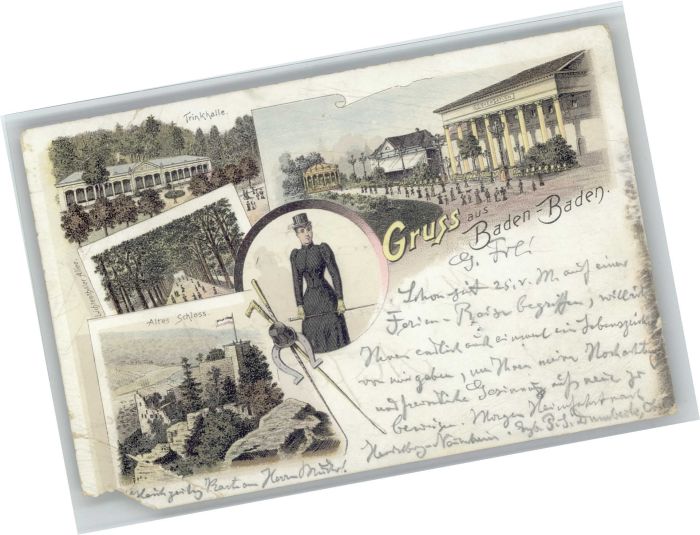 Trinkhalle.
CONVERSATION
Altes Schloss.
Gruss aus Baden-Baden.
G. Frl!
Schon seit 25. v. M. auf einer
Ferien-Reise begriffen, will ich
Ihnen endlich auch einmal ein Lebenszeichen
von mir geben, um Ihnen meine Hochachtung
und freundliche Gesinnung aufs neue zu
bezeigen. Morgen Heimfahrt nach
Gleichzeitig Karte an Herrn Bruder!